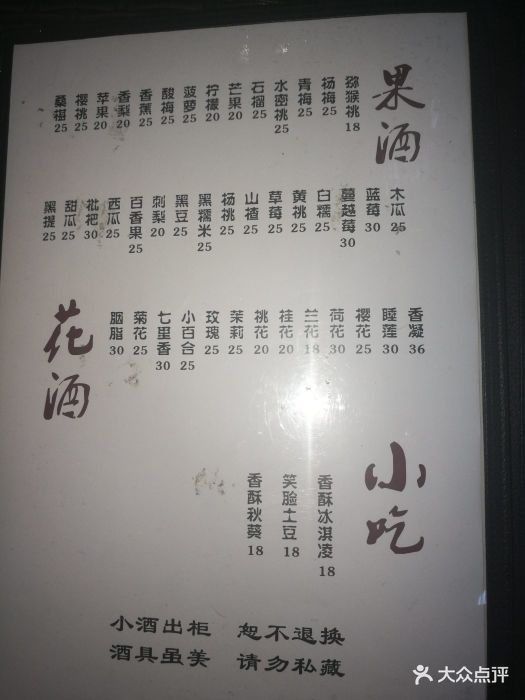 果酒
猕猴桃 18
杨梅 25
青梅 25
水密桃 25
石榴 25
芒果 20
柠檬 20
菠萝 25
酸梅 25
香蕉 25
香梨 20
苹果 20
樱桃 25
桑椹 25
木瓜 25
蓝莓 30
蔓越莓 30
白糯 25
黄桃 25
草莓 25
山楂 25
杨桃 25
黑糯米 25
黑豆 25
刺梨 20
百香果 25
西瓜 25
枇杷 30
甜瓜 25
黑提 25
花酒
香凝 36
睡莲 30
樱花 25
荷花 30
兰花 18
桂花 20
桃花 20
茉莉 25
玫瑰 25
小百合 25
七里香 30
菊花 25
胭脂 30
小吃
香酥冰淇凌 18
笑脸土豆 18
香酥秋葵 18
小酒出柜 恕不退换
酒具虽美 请勿私藏
大众点评